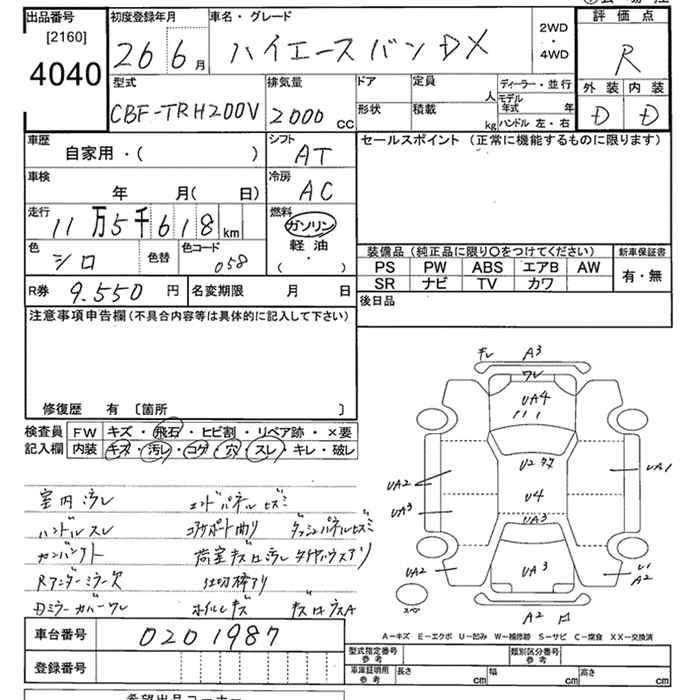 出品番号 初度登録年月 車名・グレード 2WD・4WD 評価点
[2160]
4040 26 6月 ハイエースバン DX R
型式 排気量 ドア 定員 人 ディーラー・並行 外装 内装
CBF-TRH200V 2000cc 形状 積載 kg モデル年式 年 ハンドル 左・右 D D
車歴 自家用・( ) シフト AT セールスポイント (正常に機能するものに限ります)
車検 年 月( 日) 冷房 AC
走行 11万5千618km 燃料 ガソリン
軽油
( ・ )
色 シロ 色替 色コード 058
装備品 (純正品に限り○をつけてください) 新車保証書
PS PW ABS エアB AW 有・無
SR ナビ TV カワ
R券 9.550 円 名変期限 月 日 後日品
注意事項申告欄 (不具合内容等は具体的に記入して下さい)
修復歴 有 〔箇所 〕
検査員 FW キズ・飛石・ヒビ割・リペア跡・×要
記入欄 内装 キズ・汚レ・コゲ・穴・スレ・キレ・破レ
キレ A3
ワレ
UA4
U2
UA2 U4 UA1
UA3 UA3
UA2 UA3 U1
A2
スペ
A2
室内汚レ エンドパネルヒズミ
ハンドルスレ コアサポート曲り ダッシュパネルヒズミ
ガンパクト 荷室キズ穴汚レ タイヤハウスアリ
Rアンダーミラー欠 仕切棒アリ
Dミラーカバーワレ ホイルキズ
A=キズ E=エクボ U=凹み W=補修跡 S=サビ C=腐食 XX=交換済
車台番号 0201987
登録番号
型式指定番号 参考 類別区分番号 参考
車庫証明用 参考 長さ cm 幅 cm 高さ cm
希望出品コーナー